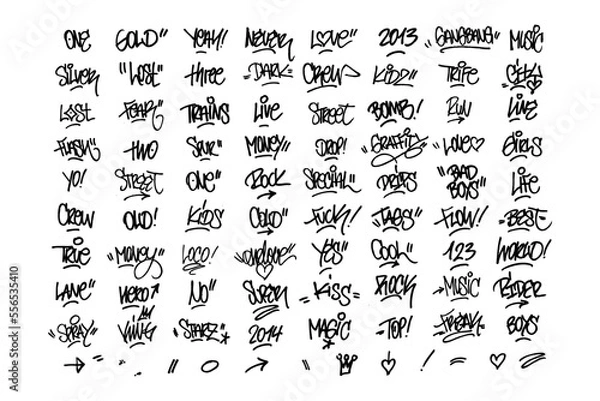 ONE GOLD" YEAH! NEVER LOVE" 2013 "GANGBANG" MUSIC
SILVER "LOST" THREE "DARK" CREW KIDZ" TRIFE CITY
LOST "FEAR" TRAINS LIVE STREET BOMB! RUN LINE
FLASH" TWO SPUR" MONEY" DROP! "GRAFFITY" "LOVE GIRLS
YO! STREET ONE" ROCK SPECIAL" DRIPS "BAD BOYS" LIFE
CREW OLD! KIDS GOLD" FUCK! "TAGS" FLOW! -BEST-
TRUE "MONEY" LOCO! "ONELOVE" YES" COOL" 123 WORLD!
LANE" HERO NO" SUPER "KISS" ROCK -MUSIC RIDER
"SPRAY" KING "STARZ" 2014 MAGIC -TOP! "FREAK" BOYS
Adobe Stock | #556535410
Adobe Stock